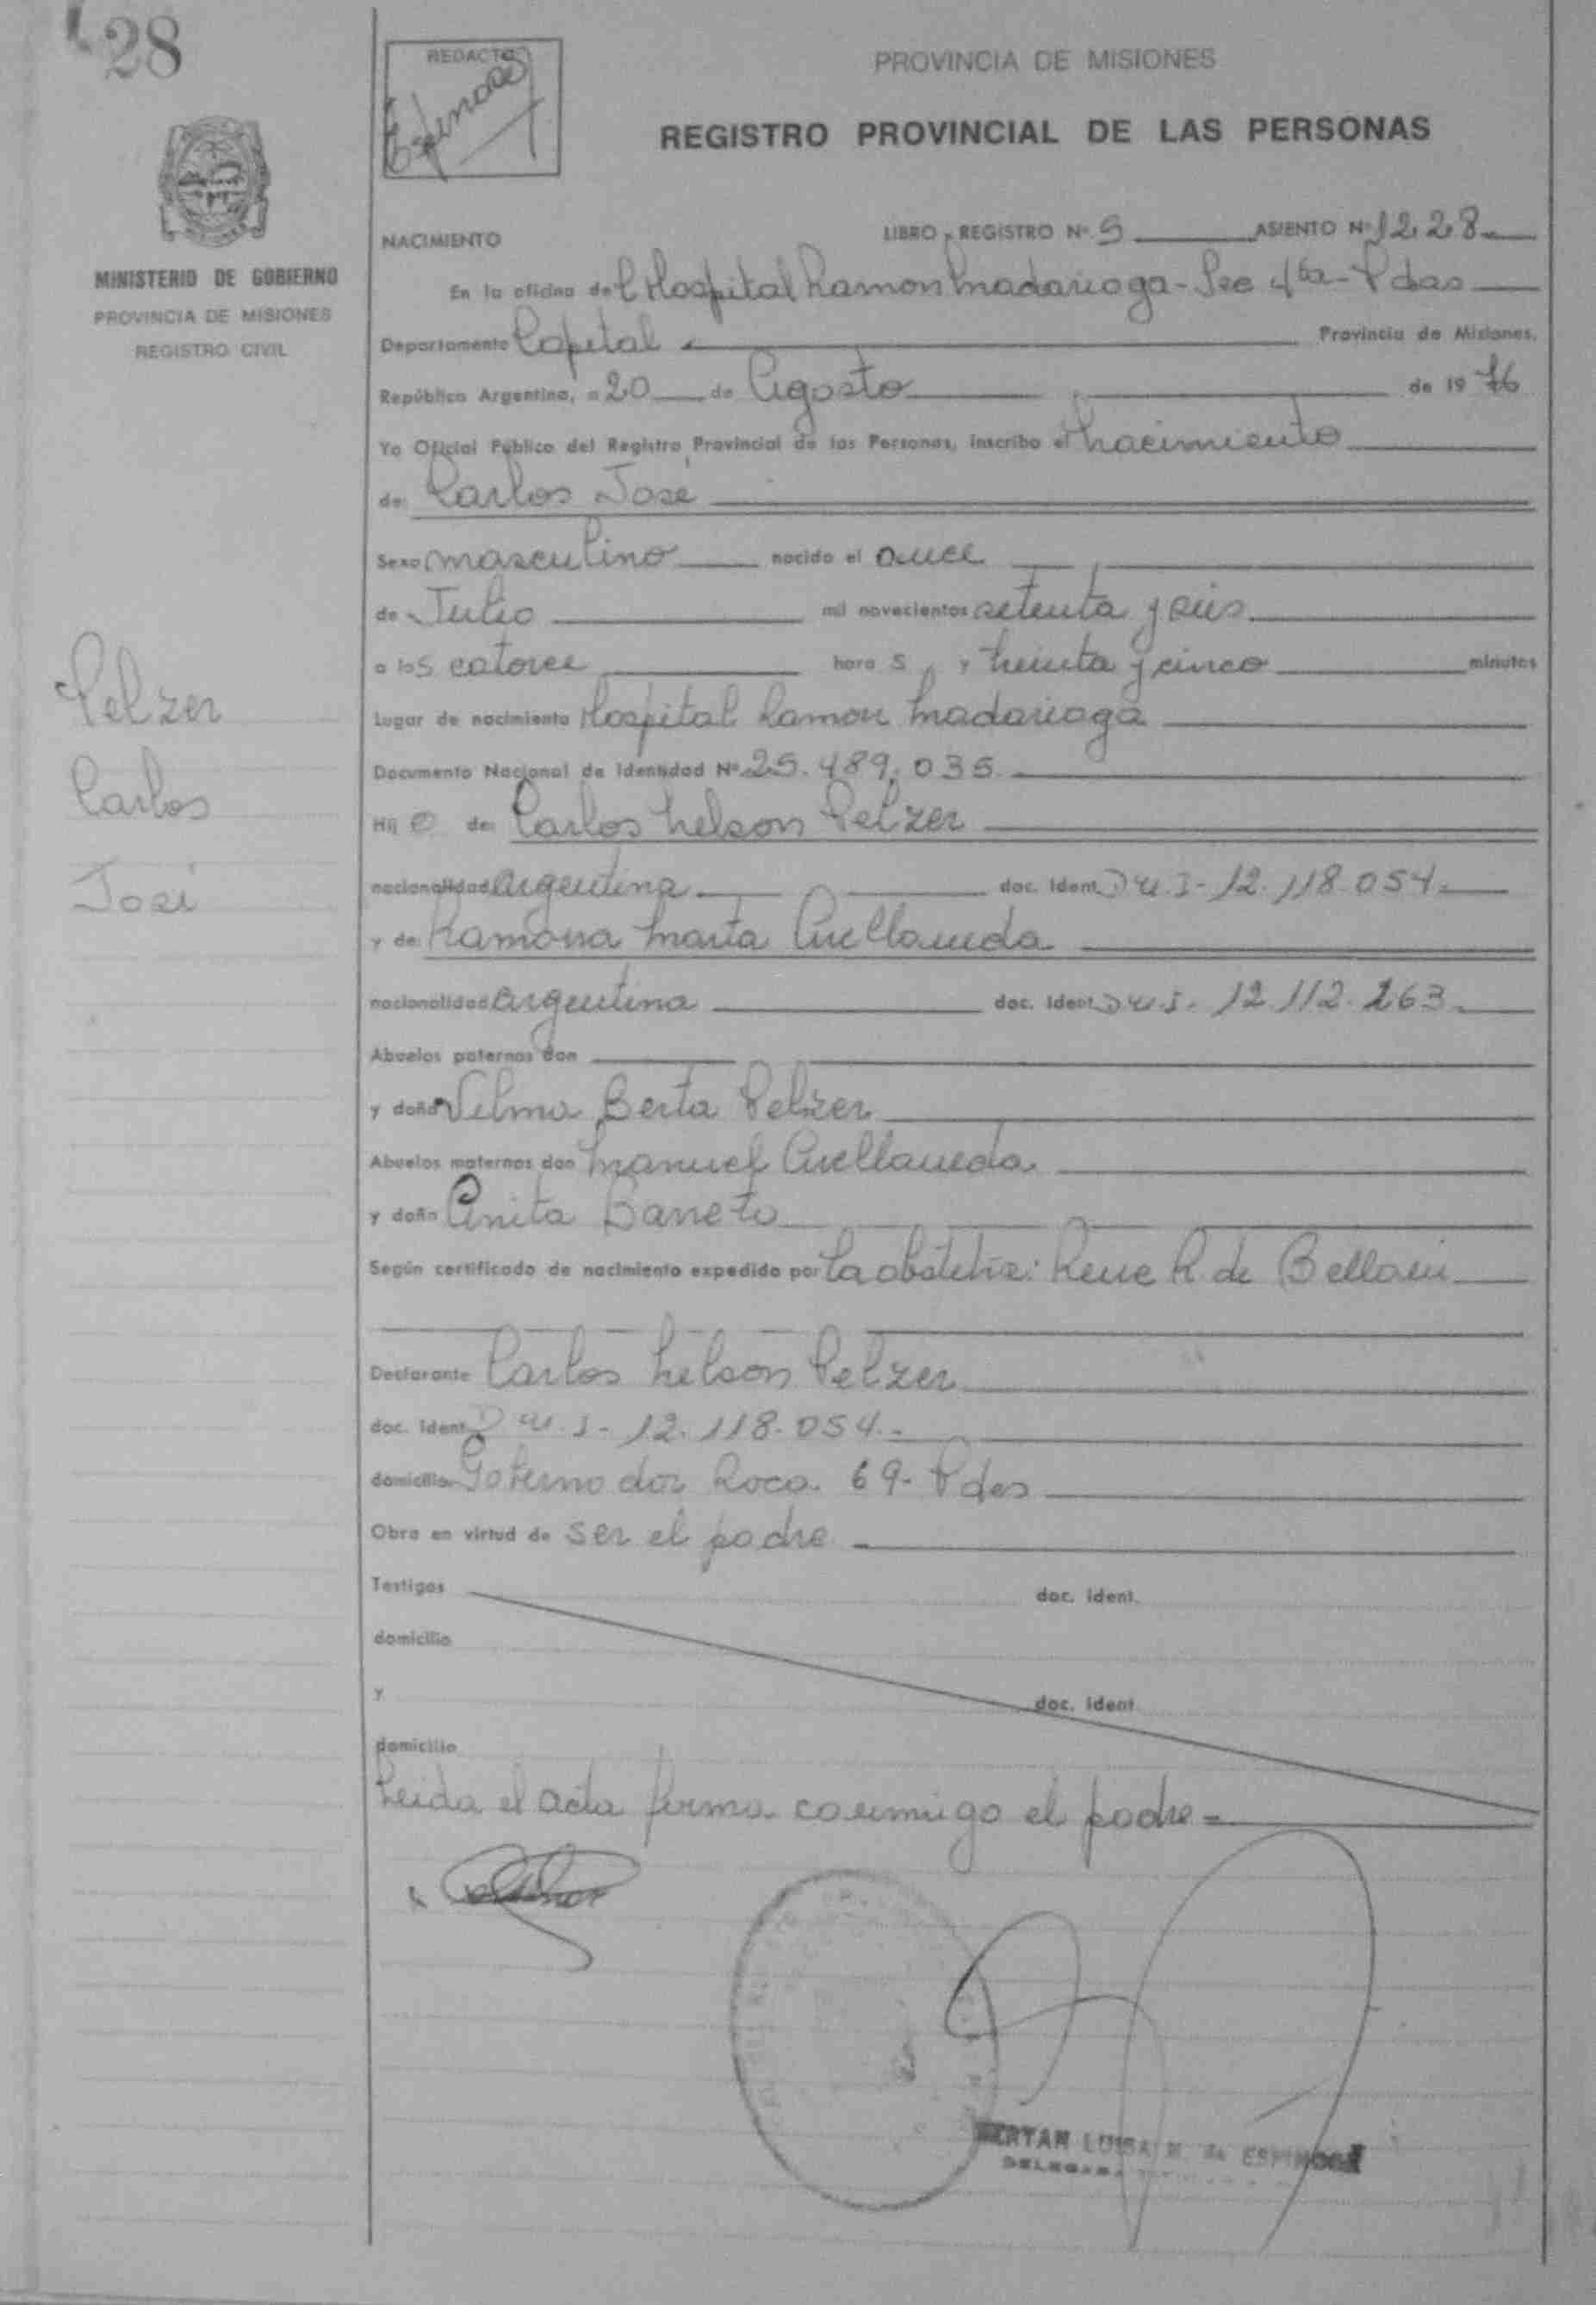 28
REDACTO
Espinosa
PROVINCIA DE MISIONES
REGISTRO PROVINCIAL DE LAS PERSONAS
MINISTERIO DE GOBIERNO
PROVINCIA DE MISIONES
REGISTRO CIVIL
NACIMIENTO LIBRO, REGISTRO Nº 5 ASIENTO Nº 1228
En la oficina del Hospital Ramon Madariaga - Sec 4ta - Pdas
Departamento Capital Provincia de Misiones,
República Argentina, a 20 de Agosto de 1976
Yo Oficial Público del Registro Provincial de las Personas, inscribo el nacimiento
de: Carlos José
Sexo masculino nacido el once
de Julio mil novecientos setenta y seis
a las catorce horas y treinta y cinco minutos
Lugar de nacimiento Hospital Ramon Madariaga
Documento Nacional de Identidad Nº 25.489.035
Hijo de: Carlos Nelson Pelzer
nacionalidad argentina doc. Ident. D.U.I- 12.118.054
y de: Ramona Marta Avellaneda
nacionalidad argentina doc. Ident. D.U.I- 12.112.263
Abuelos paternos don
y doña Velma Berta Pelzer
Abuelos maternos don Manuel Avellaneda
y doña Anita
Según certificado de nacimiento expedido por La obstetra: Rene R. de
Declarante Carlos Nelson Pelzer
doc. Ident. D.U.I- 12.118.054.-
domicilio Gobernador Roca 69- Pdas
Obra en virtud de ser el padre
Testigos doc. ident.
domicilio
y doc. ident.
domicilio
Leida el acta firma conmigo el padre-
Pelzer
Carlos
José
BERTAN LUISA M. de ESPINOSA
DELEGADA